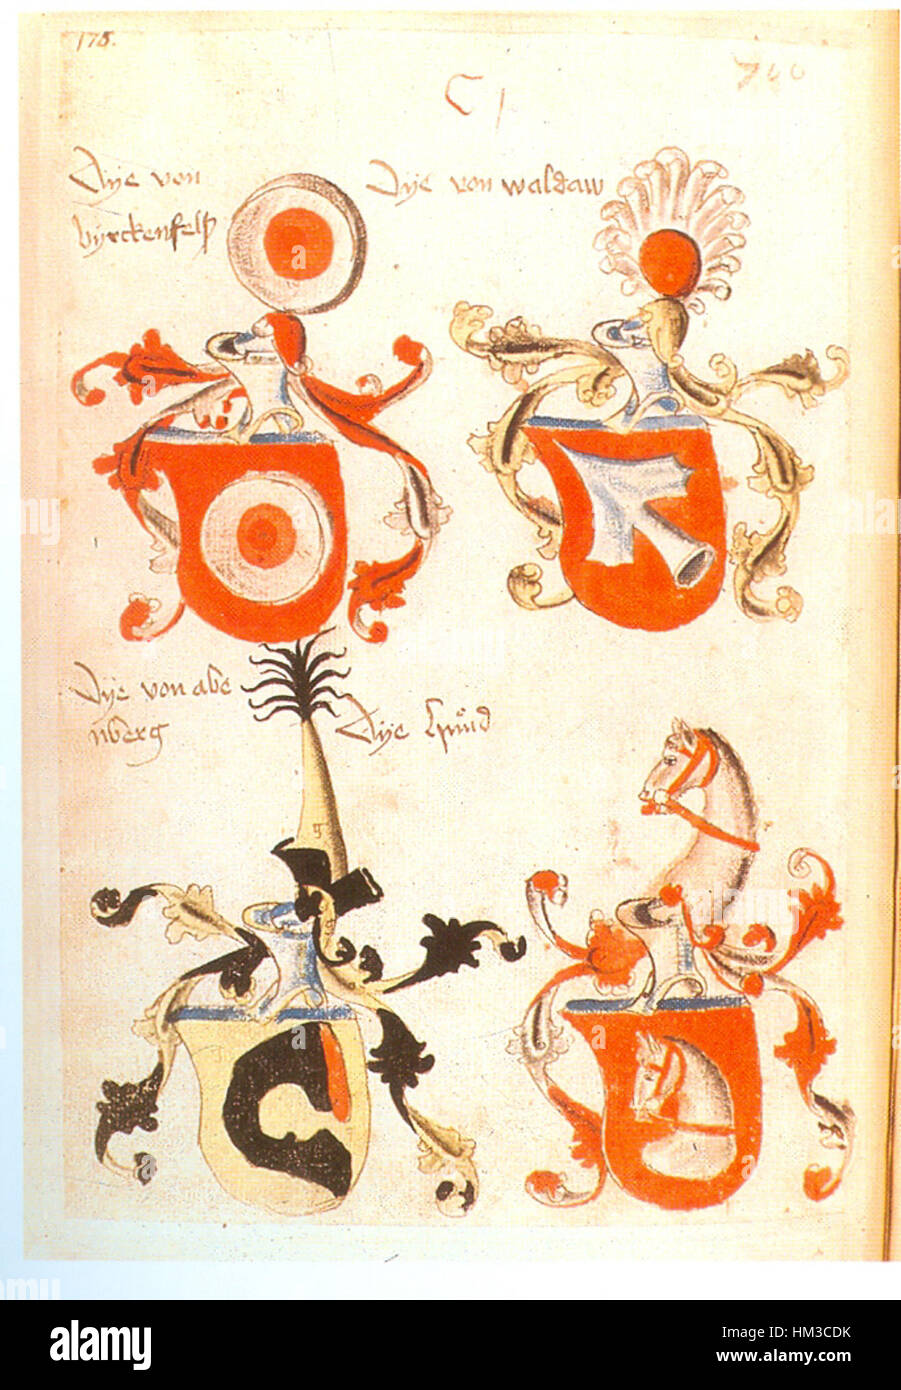 178.
C j
Dye von
byrckenfelß
Dye von waldaw
Dye von abe
nberg
Dye
alamy
Image ID: HM3CDK
www.alamy.com